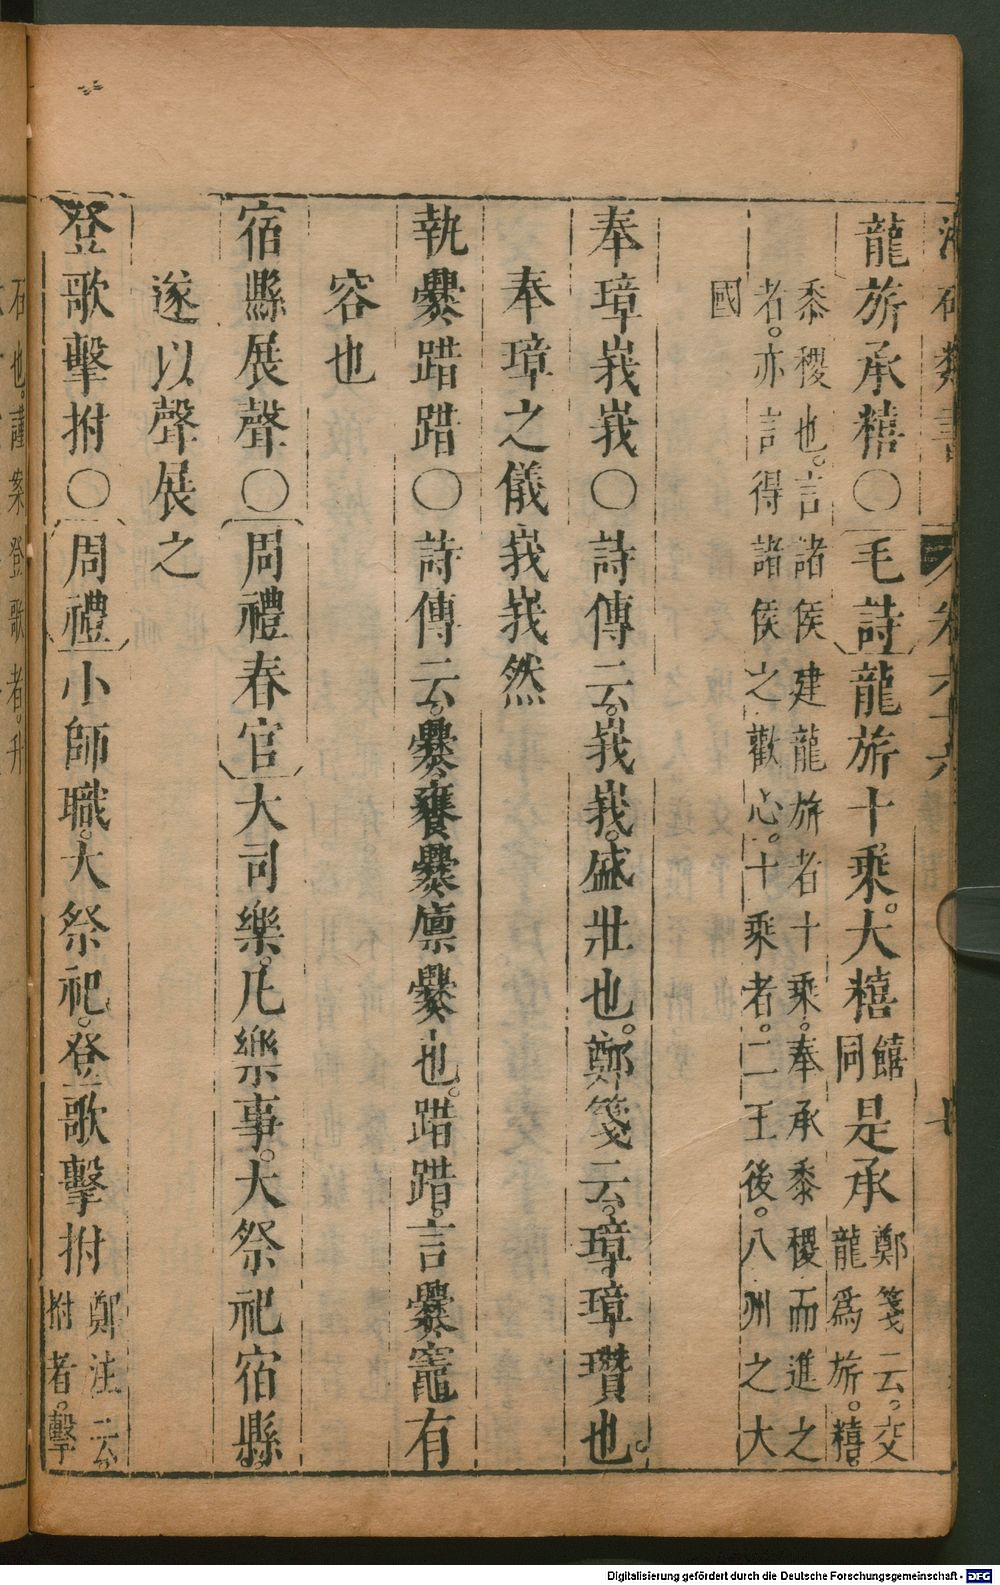 龍旂承糦〇毛詩龍旂十乘。大糦饎同是承鄭箋云。交龍爲旂。糦。
黍稷也。言諸侯建龍旂者十乘。奉承黍稷而進之
者。亦言得諸侯之歡心。十乘者。二王後。八州之大
國
奉璋峩峩〇詩傳云。峩峩。盛壯也。鄭箋云。璋。璋瓚也。
奉璋之儀峩峩然
執爨踖踖〇詩傳云。爨饔爨廩爨也。踖踖。言爨竈有
容也
宿縣展聲〇周禮春官大司樂。凡樂事。大祭祀宿縣。
遂以聲展之
登歌擊拊〇周禮小師職。大祭祀。登歌擊拊鄭注云。拊者。擊
石也。謹案登歌者。升
卷六十六
Digitalisierung gefördert durch die Deutsche Forschungsgemeinschaft - DFG